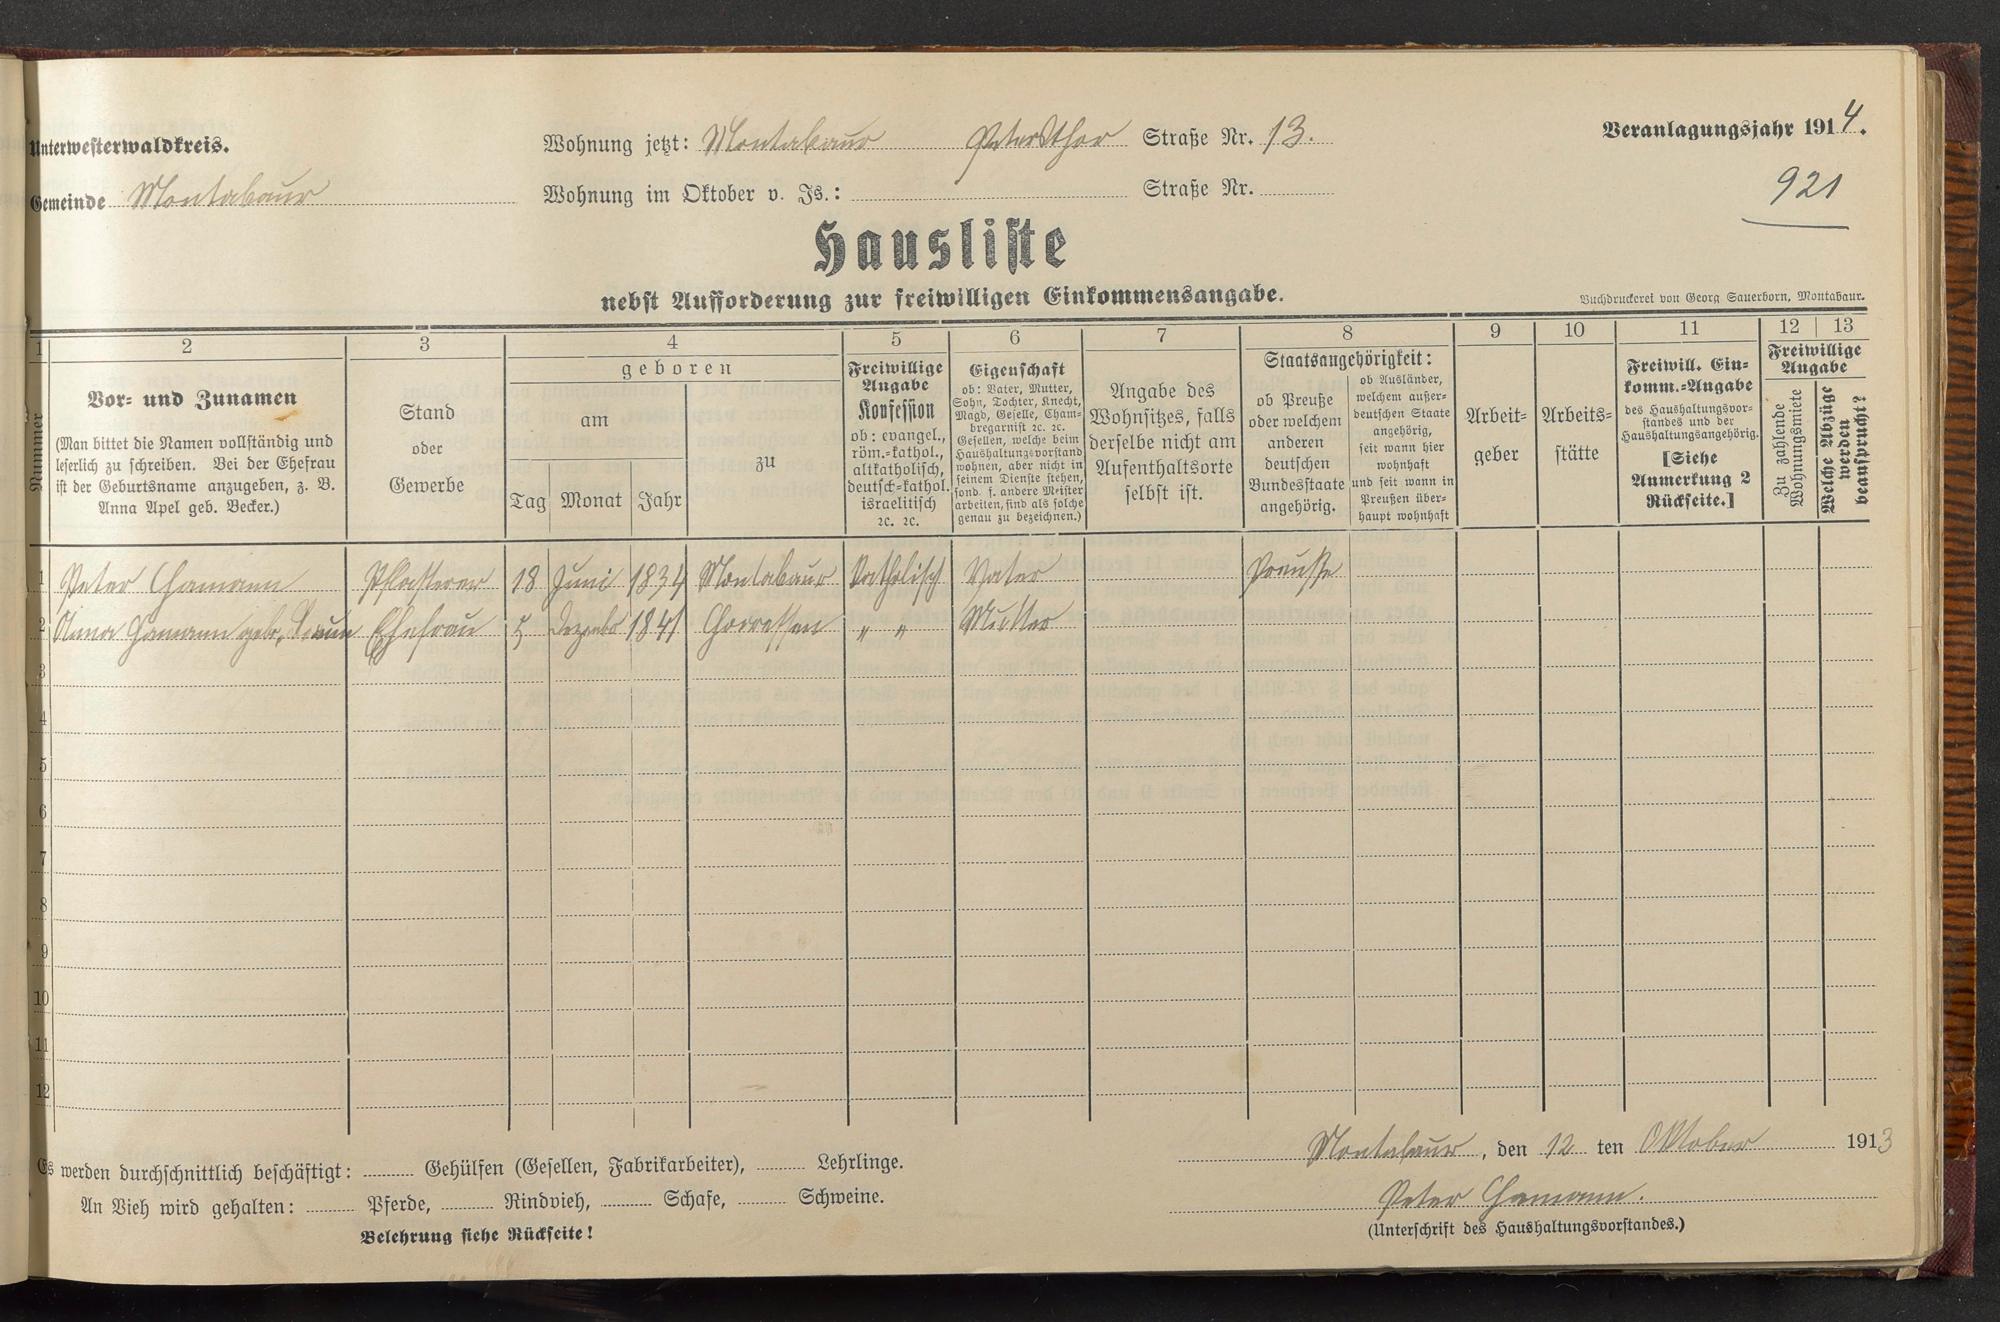 Unterwesterwaldkreis.
Wohnung jetzt: Montabaur Petersthor Straße Nr. 13.
Veranlagungsjahr 1914.
Gemeinde Montabaur
Wohnung im Oktober v. Js.: Straße Nr.
921
Hausliste
nebst Aufforderung zur freiwilligen Einkommensangabe.
Buchdruckerei von Georg Sauerborn, Montabaur.
1 2 3 4 5 6 7 8 9 10 11 12 13
Nummer
Vor- und Zunamen
(Man bittet die Namen vollständig und
leserlich zu schreiben. Bei der Ehefrau
ist der Geburtsname anzugeben, z. B.
Anna Apel geb. Becker.)
Stand
oder
Gewerbe
geboren
am
Tag Monat Jahr
zu
Freiwillige
Angabe
Konfession
ob: evangel.,
röm.-kathol.,
altkatholisch,
deutsch-kathol.
israelitisch
ꝛc. ꝛc.
Eigenschaft
ob: Vater, Mutter,
Sohn, Tochter, Knecht,
Magd, Geselle, Cham-
bregarnist ꝛc. ꝛc.
Gesellen, welche beim
Haushaltungsvorstand
wohnen, aber nicht in
seinem Dienste stehen,
sond. f. andere Meister
arbeiten, sind als solche
genau zu bezeichnen.)
Angabe des
Wohnsitzes, falls
derselbe nicht am
Aufenthaltsorte
selbst ist.
Staatsangehörigkeit:
ob Preuße
oder welchem
anderen
deutschen
Bundesstaate
angehörig.
ob Ausländer,
welchem außer-
deutschen Staate
angehörig,
seit wann hier
wohnhaft
und seit wann in
Preußen über-
haupt wohnhaft
Arbeit-
geber
Arbeits-
stätte
Freiwill. Ein-
komm.-Angabe
des Haushaltungsvor-
standes und der
Haushaltungsangehörig.
[Siehe
Anmerkung 2
Rückseite.]
Freiwillige
Angabe
Zu zahlende
Wohnungsmiete
Welche Abzüge
werden
beansprucht?
1 Peter Hamann Pflasterer 18 Juni 1834 Montabaur Katholisch Vater Preuße
2 Anna Hamann geb. Braun Ehefrau 5 Dezembr 1841 Horressen " " Mutter
3
4
5
6
7
8
9
10
11
12
Es werden durchschnittlich beschäftigt: Gehülfen (Gesellen, Fabrikarbeiter), Lehrlinge.
An Vieh wird gehalten: Pferde, Rindvieh, Schafe, Schweine.
Belehrung siehe Rückseite!
Montabaur, den 12 ten Oktober 1913
Peter Hamann.
(Unterschrift des Haushaltungsvorstandes.)